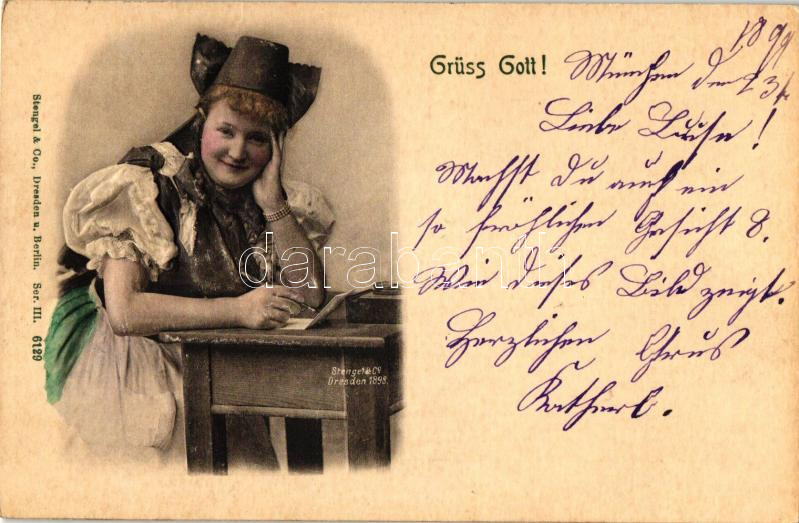 Grüss Gott!
1899
München den 23/
Liebe Luise!
Machst du auch ein
so fröhliches Gesicht
Wie dieses Bild zeigt.
Herzlichen Grus
Stengel & Co., Dresden u. Berlin. Ser. III. 6129
Stengel & Co
Dresden 1898.
darabanth